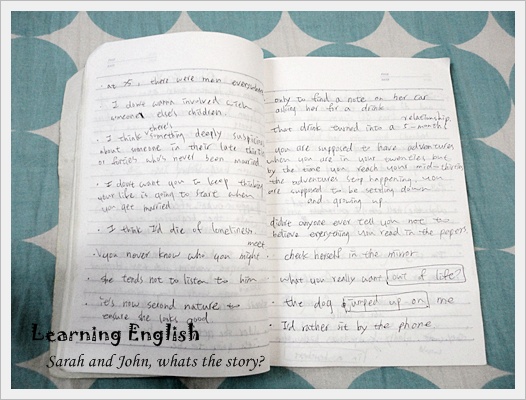 at 25, there were men everywhere
· I don't wanna involved with
someone else's children.
· I think there's something deeply suspicious
about someone in their late thirties
or forties who's never been married.
· I don't want you to keep thinking
your life is going to start when
you get married.
· I think I'd die of loneliness.
· you never know who you might meet
· she tends not to listen to him
· it's now second nature to
ensure she looks good
only to find a note on her car
asking her for a drink
that drink turned into a 5-month relationship
you are supposed to have adventures
when you are in your twenties, but
by the time you reach your mid-thirties
the adventures stop happening. you
are supposed to be settling down
and growing up.
didn't anyone ever tell you not to
believe everything you read in the papers.
· check herself in the mirror
what you really want out of life?
· the dog jumped up on me
· I'd rather sit by the phone
Learning English
Sarah and John, whats the story?